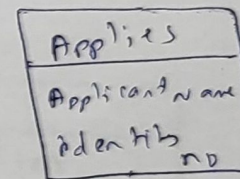 Applies
Applicant Name
identity
no